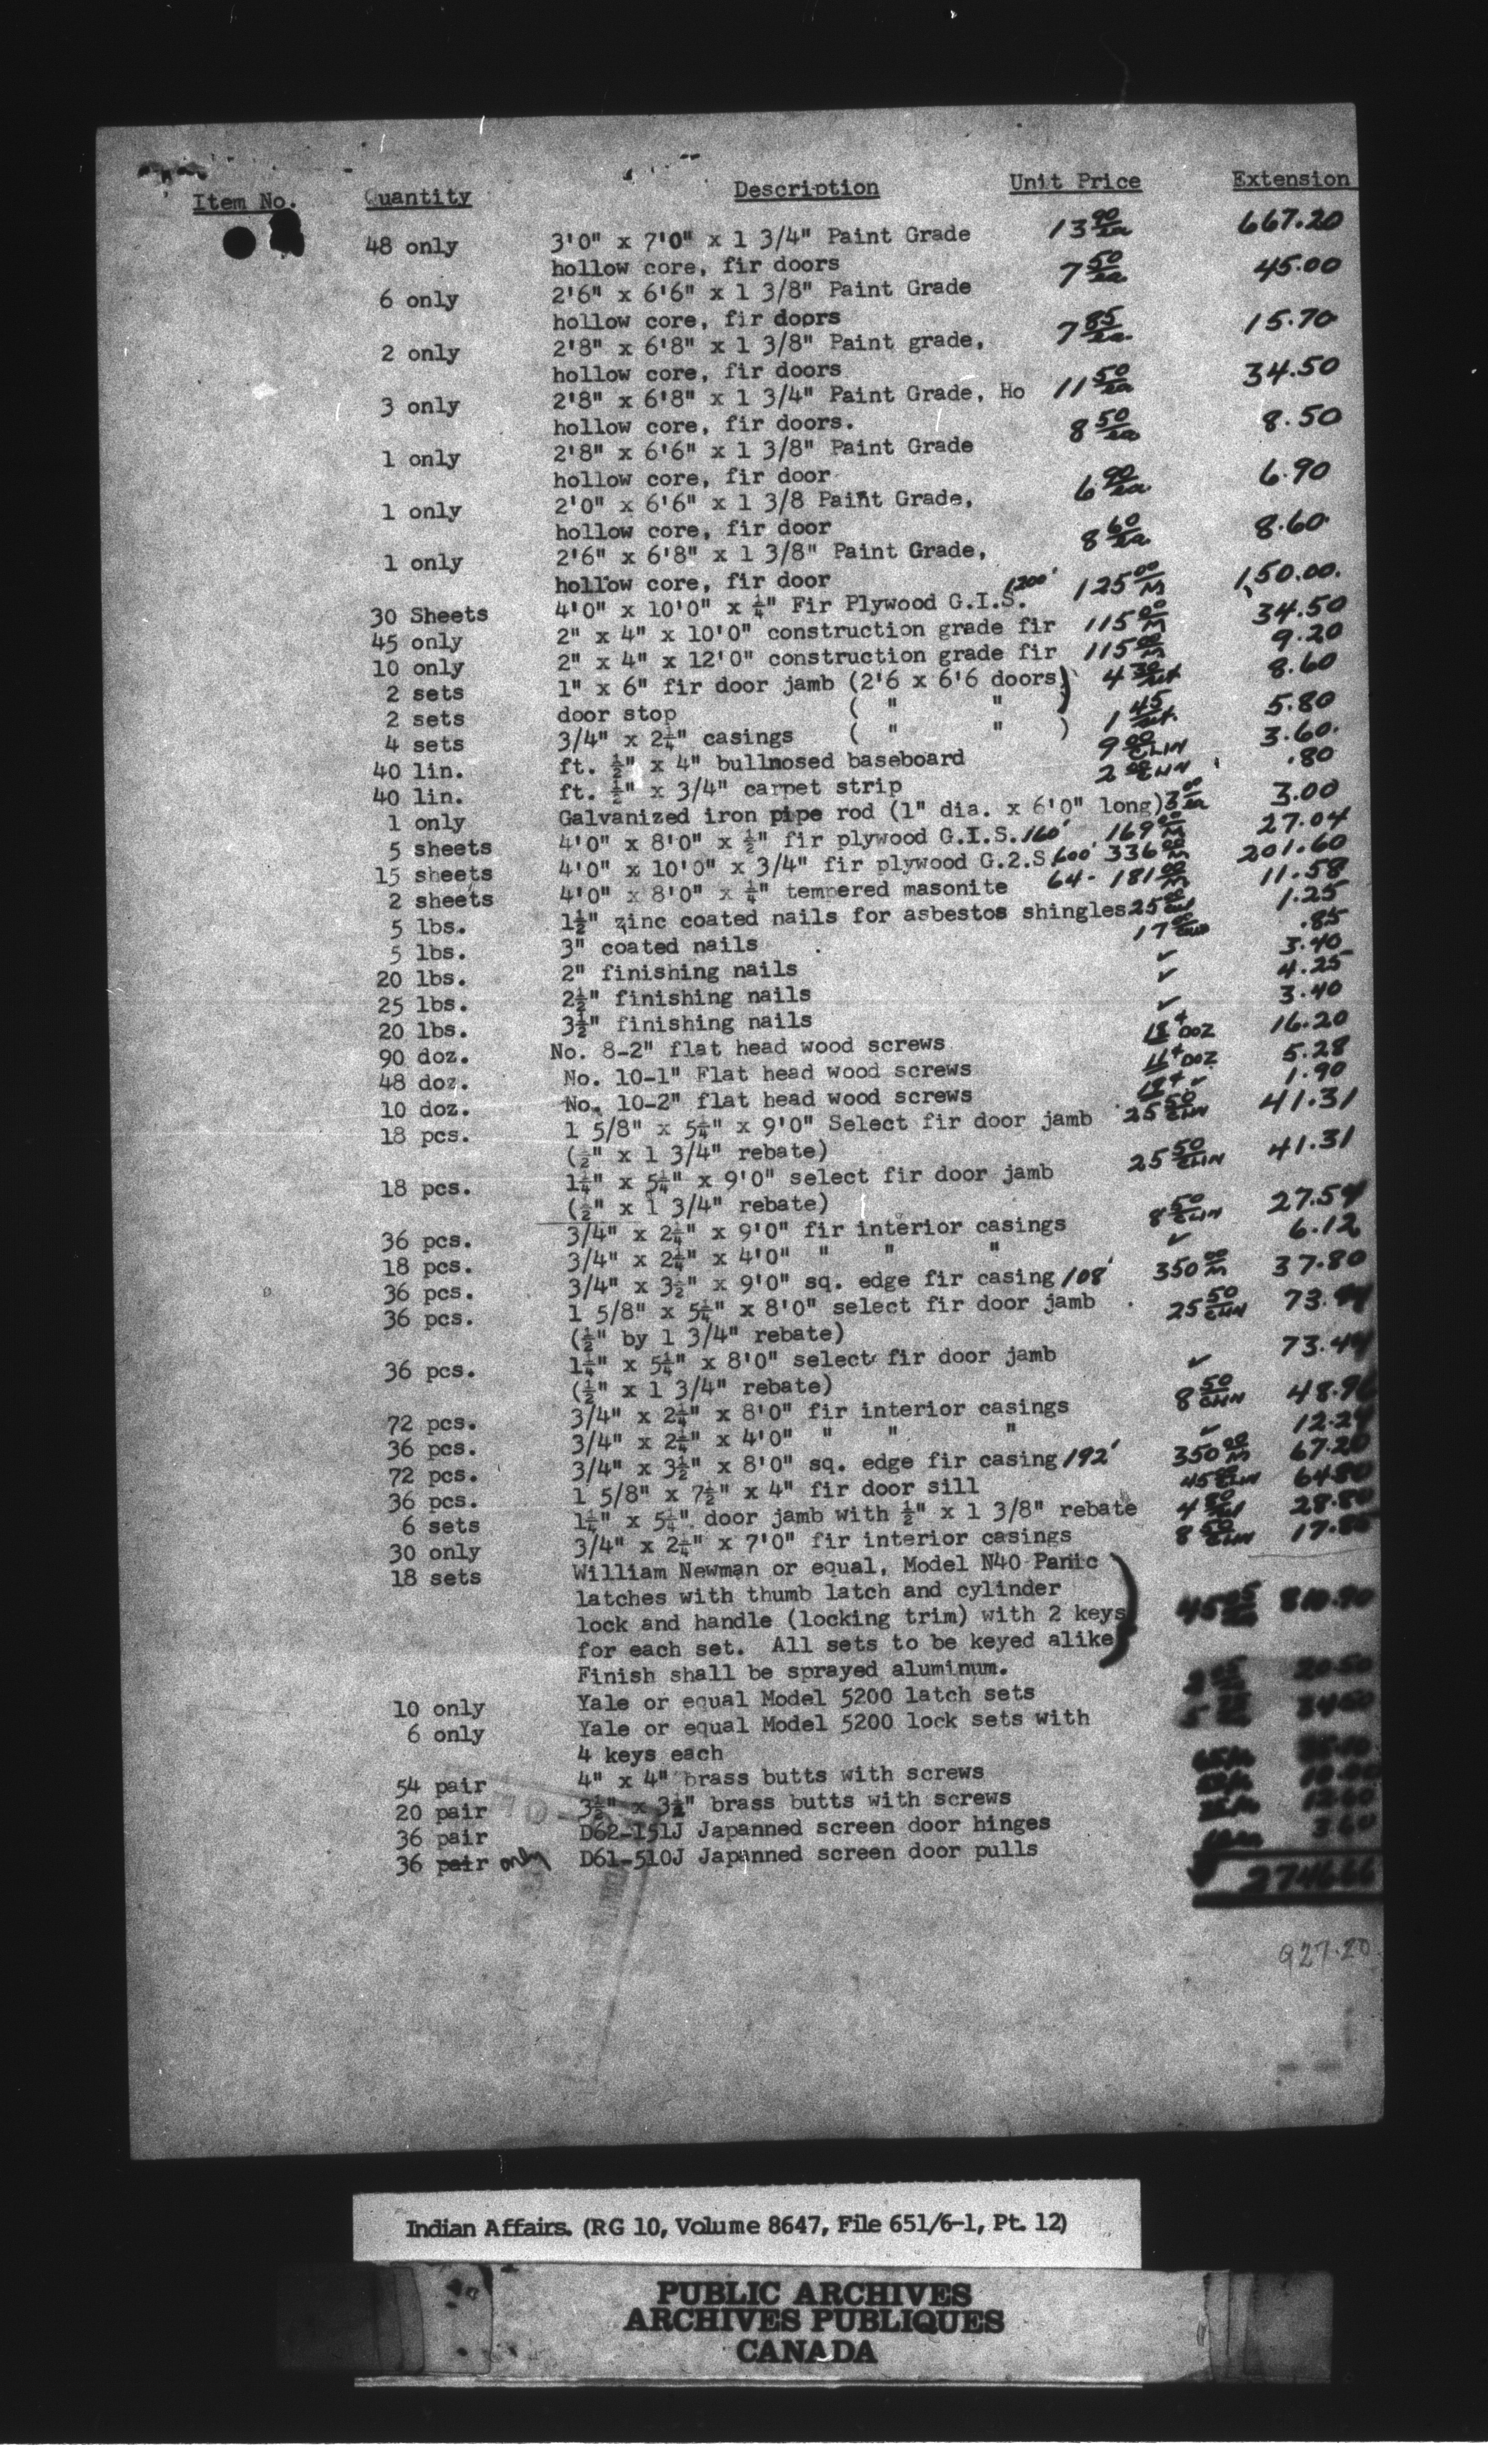 Item No. Quantity Description Unit Price Extension
48 only 3'0" x 7'0" x 1 3/4" Paint Grade 13 90 ea 667.20
hollow core, fir doors
6 only 2'6" x 6'6" x 1 3/8" Paint Grade 7 50 ea 45.00
hollow core, fir doors
2 only 2'8" x 6'8" x 1 3/8" Paint grade, 7 85 ea. 15.70
hollow core, fir doors
3 only 2'8" x 6'8" x 1 3/4" Paint Grade, Ho 11 50 ea 34.50
hollow core, fir doors.
1 only 2'8" x 6'6" x 1 3/8" Paint Grade 8 50 ea 8.50
hollow core, fir door
1 only 2'0" x 6'6" x 1 3/8 Paint Grade, 6 90 ea 6.90
hollow core, fir door
1 only 2'6" x 6'8" x 1 3/8" Paint Grade, 8 60 ea 8.60
hollow core, fir door
30 Sheets 4'0" x 10'0" x ¼" Fir Plywood G.I.S. 1200' 125 00 M 150.00.
45 only 2" x 4" x 10'0" construction grade fir 115 00 M 34.50
10 only 2" x 4" x 12'0" construction grade fir 115 00 M 9.20
2 sets 1" x 6" fir door jamb (2'6 x 6'6 doors) 4 30 set 8.60
2 sets door stop ( " " )
4 sets 3/4" x 2¼" casings ( " " ) 1 45 set. 5.80
40 lin. ft. ½" x 4" bullnosed baseboard 9 00 CLIN 3.60.
40 lin. ft. ½" x 3/4" carpet strip 2 00 CLIN .80
1 only Galvanized iron pipe rod (1" dia. x 6'0" long) 3 00 ea 3.00
5 sheets 4'0" x 8'0" x ½" fir plywood G.I.S. 160' 169 00 M 27.04
15 sheets 4'0" x 10'0" x 3/4" fir plywood G.2.S. 600' 336 00 M 201.60
2 sheets 4'0" x 8'0" x ¼" tempered masonite 64- 181 00 M 11.58
5 lbs. 1½" zinc coated nails for asbestos shingles 25 00 1.25
5 lbs. 3" coated nails 17 00 .85
20 lbs. 2" finishing nails ✓ 3.40
25 lbs. 2½" finishing nails ✓ 4.25
20 lbs. 3½" finishing nails ✓ 3.40
90 doz. No. 8-2" flat head wood screws 18¢ DOZ 16.20
48 doz. No. 10-1" Flat head wood screws 11¢ DOZ 5.28
10 doz. No. 10-2" flat head wood screws 19¢ ✓ 1.90
18 pcs. 1 5/8" x 5¼" x 9'0" Select fir door jamb 25 50 CLIN 41.31
(½" x 1 3/4" rebate)
18 pcs. 1¼" x 5¼" x 9'0" select fir door jamb 25 50 CLIN 41.31
(½" x 1 3/4" rebate)
36 pcs. 3/4" x 2¼" x 9'0" fir interior casings 8 50 CLIN 27.54
18 pcs. 3/4" x 2¼" x 4'0" " " " ✓ 6.12
36 pcs. 3/4" x 3½" x 9'0" sq. edge fir casing 108' 350 00 M 37.80
36 pcs. 1 5/8" x 5¼" x 8'0" select fir door jamb 25 50 CLIN 73.44
(½" by 1 3/4" rebate)
36 pcs. 1¼" x 5¼" x 8'0" select fir door jamb ✓ 73.44
(½" x 1 3/4" rebate)
72 pcs. 3/4" x 2¼" x 8'0" fir interior casings 8 50 CLIN 48.96
36 pcs. 3/4" x 2¼" x 4'0" " " " ✓ 12.24
72 pcs. 3/4" x 3½" x 8'0" sq. edge fir casing 192' 350 00 M 67.20
36 pcs. 1 5/8" x 7½" x 4" fir door sill 45 00 CLIN 64.80
6 sets 1¼" x 5¼" door jamb with ½" x 1 3/8" rebate 4 80 28.80
30 only 3/4" x 2¼" x 7'0" fir interior casings 8 50 CLIN 17.85
18 sets William Newman or equal, Model N40 Panic
latches with thumb latch and cylinder
lock and handle (locking trim) with 2 keys 45 05 ea 810.90
for each set. All sets to be keyed alike
Finish shall be sprayed aluminum.
10 only Yale or equal Model 5200 latch sets 20.50
6 only Yale or equal Model 5200 lock sets with
4 keys each
54 pair 4" x 4" brass butts with screws
20 pair 3½" x 3½" brass butts with screws 10.00
36 pair D62-151J Japanned screen door hinges 12.60
36 pair only D61-510J Japanned screen door pulls 10 ea 3.60
2746.66
927.20
Indian Affairs. (RG 10, Volume 8647, File 651/6-1, Pt. 12)
PUBLIC ARCHIVES
ARCHIVES PUBLIQUES
CANADA